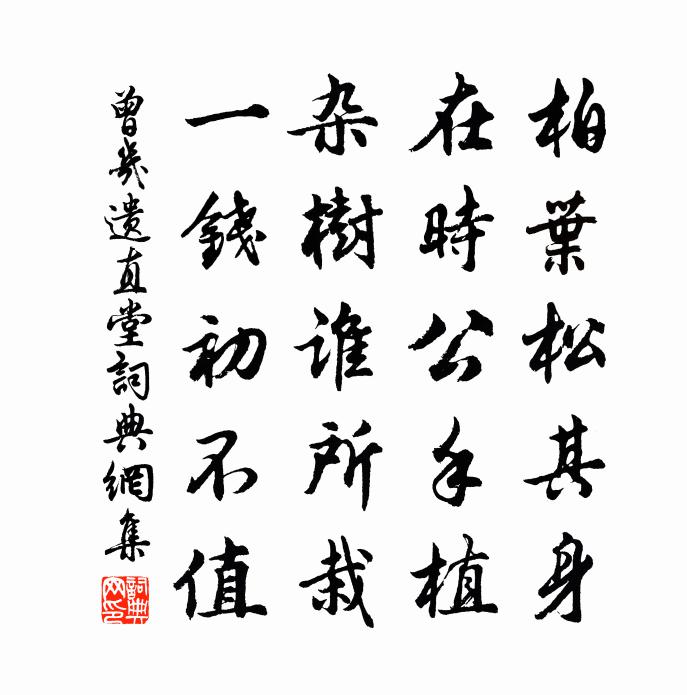 柏葉松其身
在時公手植
杂樹谁所栽
一錢初不值
曾幾遗直堂詞典網集
詞典網印